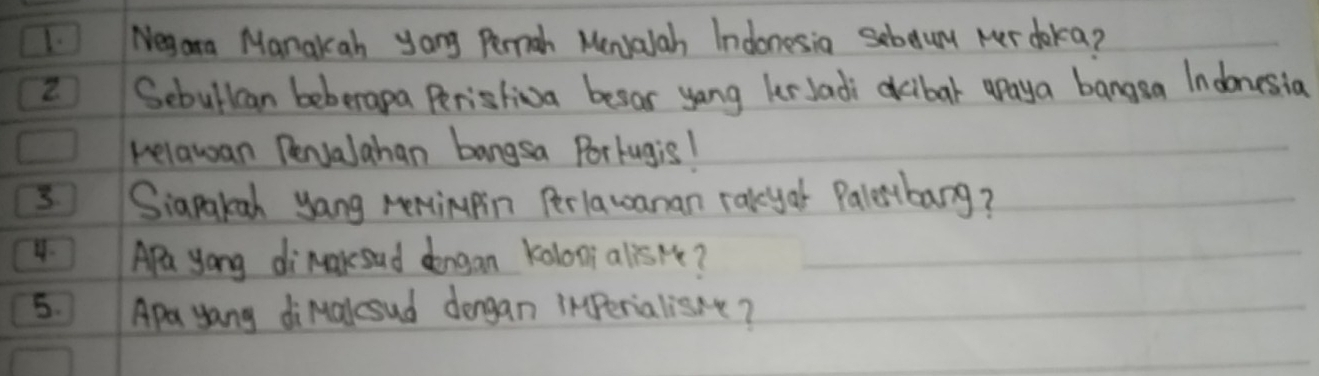 1. Negara Manakah yang Pernah Menjajah Indonesia sebelum Merdeka?
2 Sebutkan beberapa Peristiwa besar yang terjadi akibat upaya bangsa Indonesia
Melawan Penjajahan bangsa Portugis!
3. Siapakah yang MeMiMPin Perlawanan rakyat Palembang?
4. APa yang diMaksud dengan kolonialisMe?
5. APa yang diMaksud dengan iMPerialisMe?